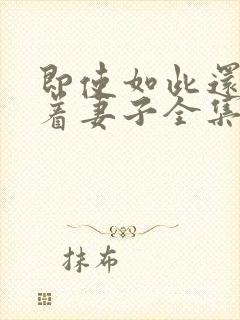 即使如此還
着妻子全集
抹布